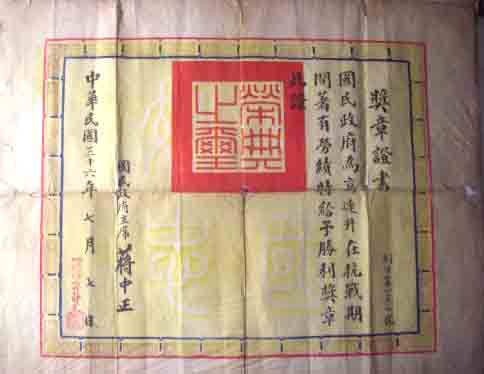 獎章證書
國民政府為高連升在抗戰期
間著有勞績特給予勝利獎章
此證
榮典
之璽
國民政府主席 蔣中正
中華民國三十六年七月七